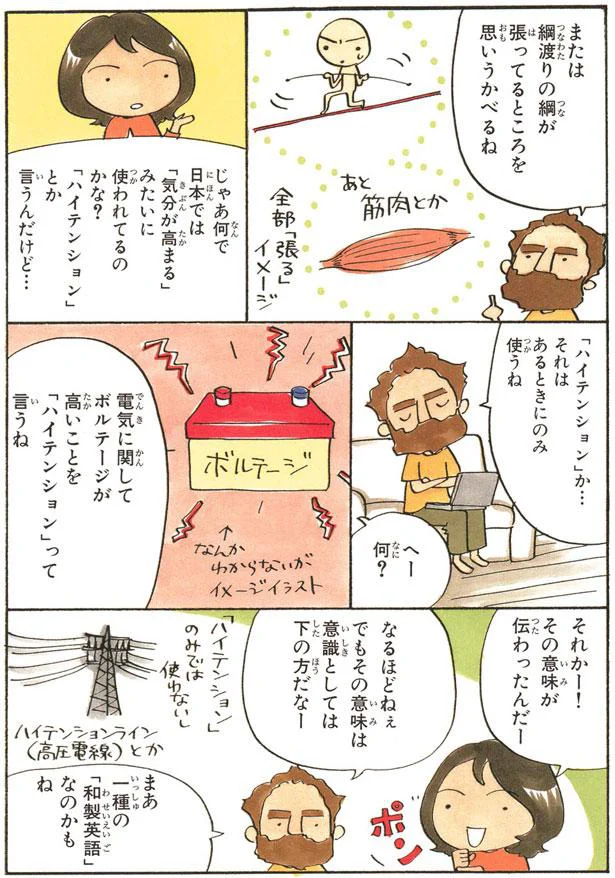 または
綱渡りの綱が
張ってるところを
思いうかべるね
あと
筋肉とか
全部「張る」
イメージ
じゃあ何で
日本では
「気分が高まる」
みたいに
使われてるの
かな?
「ハイテンション」
とか
言うんだけど…
「ハイテンション」か…
それは
あるときにのみ
使うね
へー
何?
ボルテージ
↑
なんか
わからないが
イメージイラスト
電気に関して
ボルテージが
高いことを
「ハイテンション」って
言うね
それかー!
その意味が
伝わったんだー
ポン
なるほどねぇ
でもその意味は
意識としては
下の方だなー
「ハイテンション」
のみでは
使わない
ハイテンションライン
(高圧電線)とか
まあ
一種の
「和製英語」
なのかも
ね